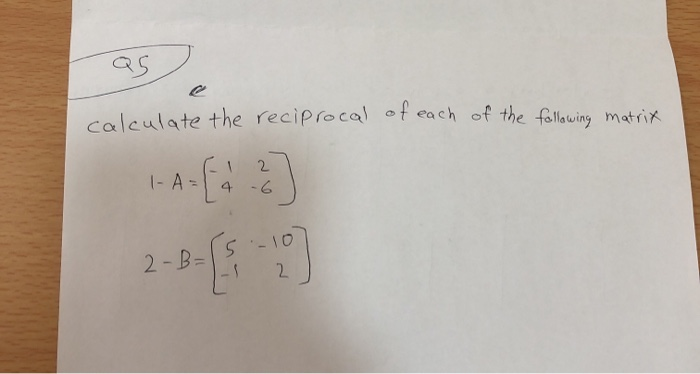 Q5
calculate the reciprocal of each of the following matrix
1- A = [ -1 2
4 -6 ]
2 - B = [ 5 -10
-1 2 ]